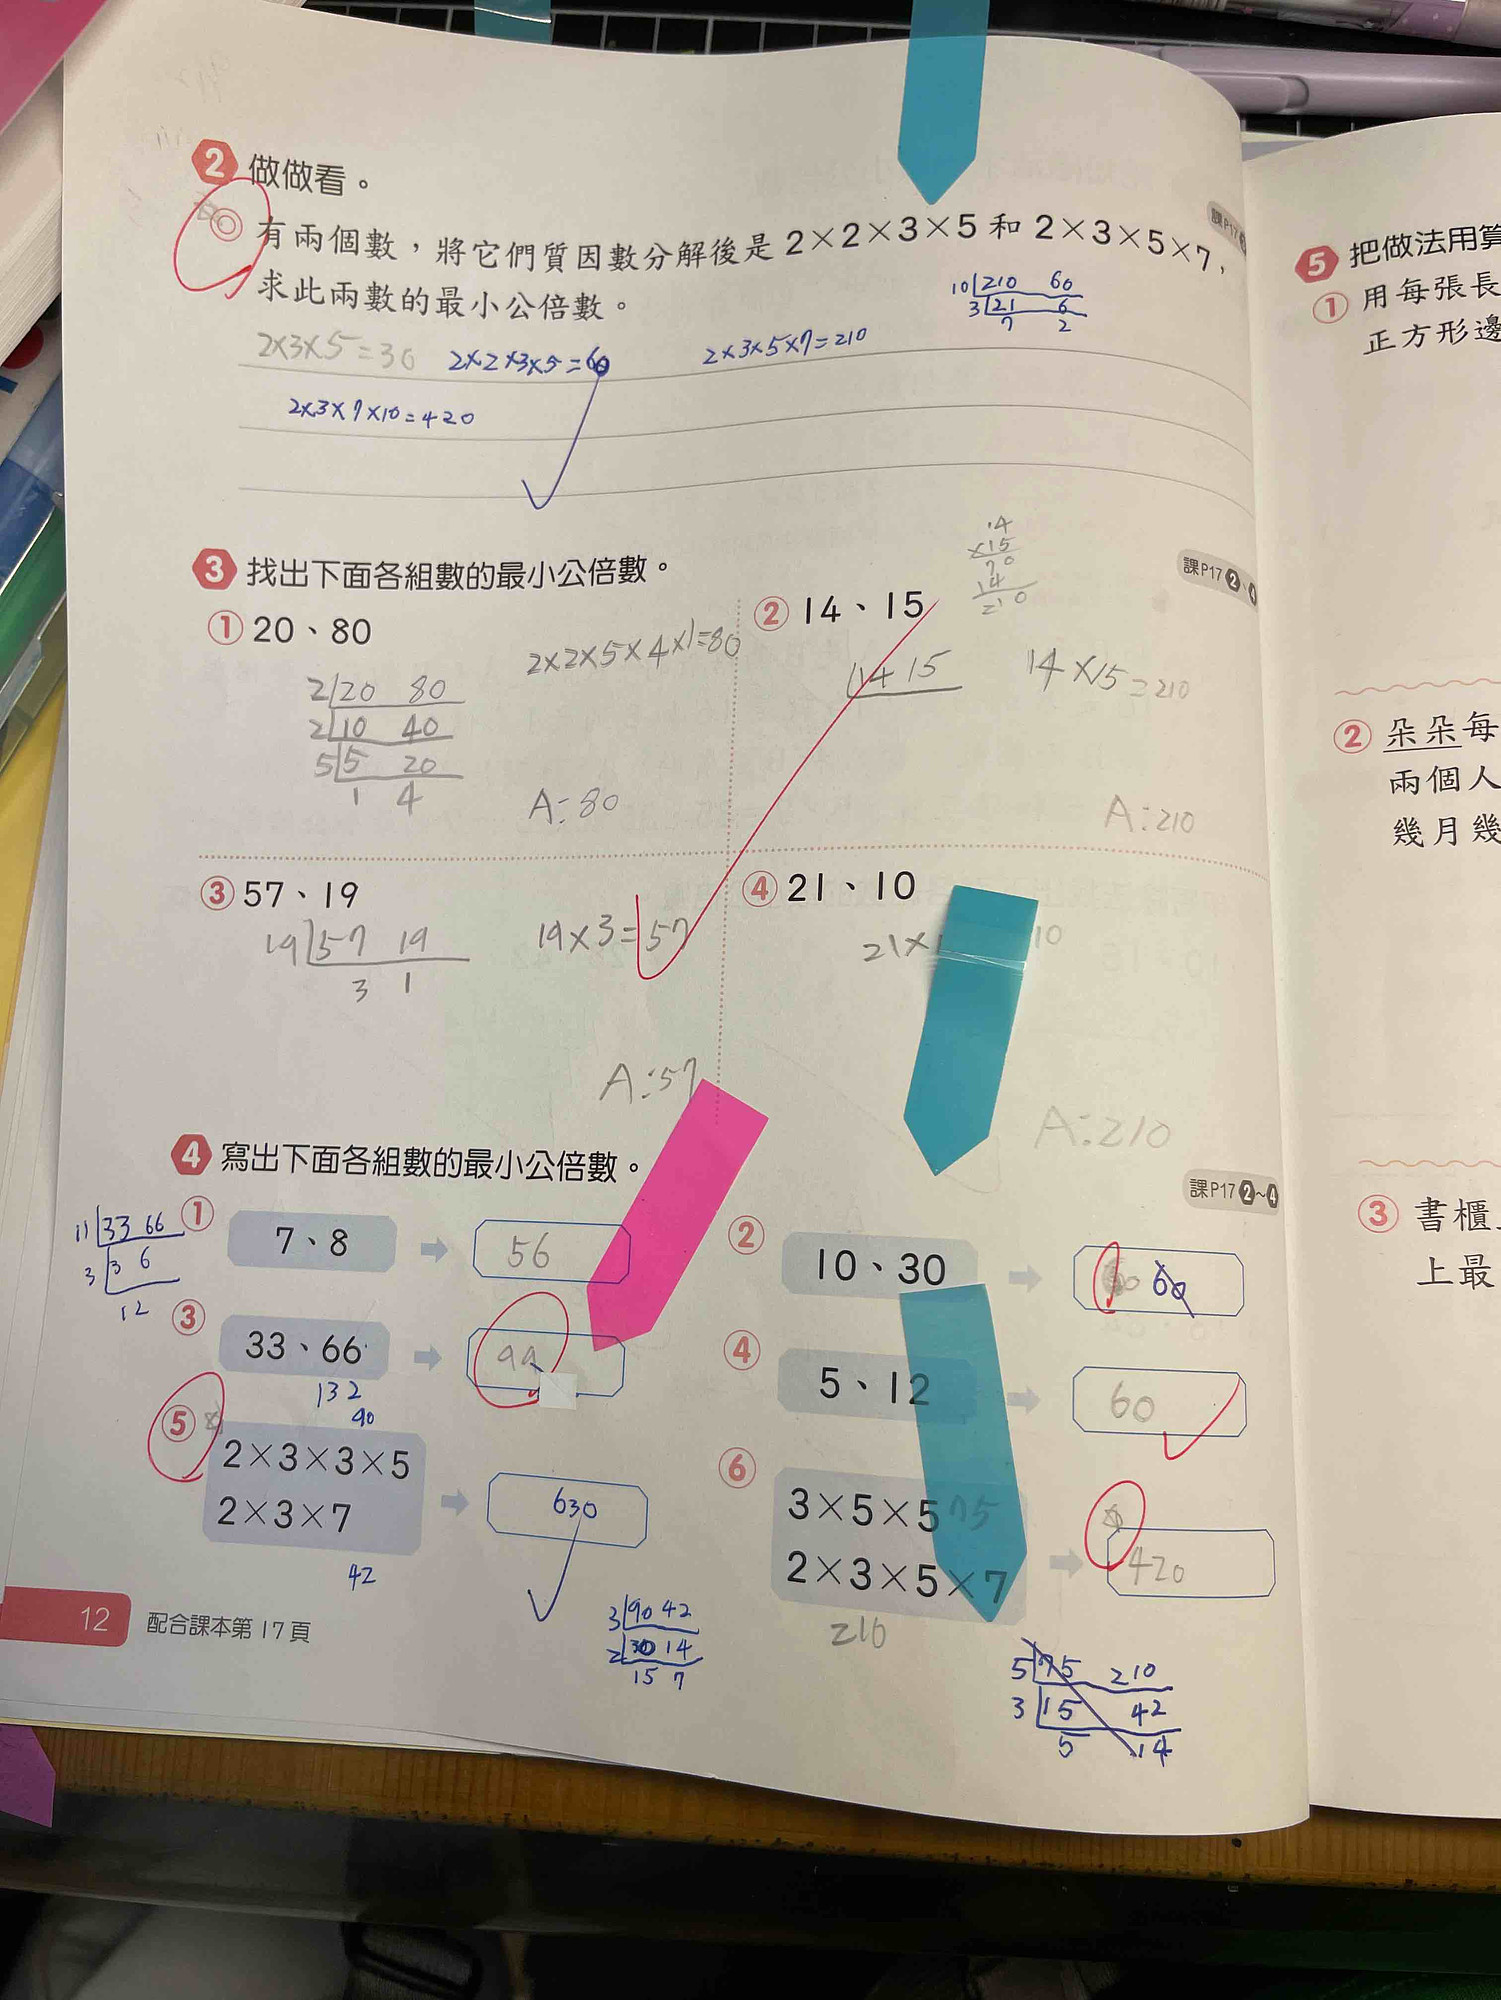 2 做做看。
◎ 有兩個數,將它們質因數分解後是 2×2×3×5 和 2×3×5×7,
求此兩數的最小公倍數。
課P17
10 210 60
3 21 6
7 2
2×3×5=30 2×2×3×5=60 2×3×5×7=210
2×3×7×10=420
3 找出下面各組數的最小公倍數。
課P17 2、4
① 20、80
2×2×5×4×1=80
2 20 80
2 10 40
5 5 20
1 4
A:80
② 14、15
14
×15
70
14
210
14 15
14×15=210
A:210
③ 57、19
19 57 19
3 1
19×3=57
A:57
④ 21、10
21×
10
A:210
4 寫出下面各組數的最小公倍數。
課P17 2~4
① 7、8
56
11 33 66
3 3 6
1 2
② 10、30
60
③ 33、66
99
132
④ 5、12
60
⑤ 2×3×3×5
90
2×3×7
42
630
3 90 42
2 30 14
15 7
⑥ 3×5×5 75
2×3×5×7
210
420
5 75 210
3 15 42
5 14
12 配合課本第17頁
5 把做法用算
① 用每張長
正方形邊
② 朵朵每
兩個人
幾月幾
③ 書櫃
上最